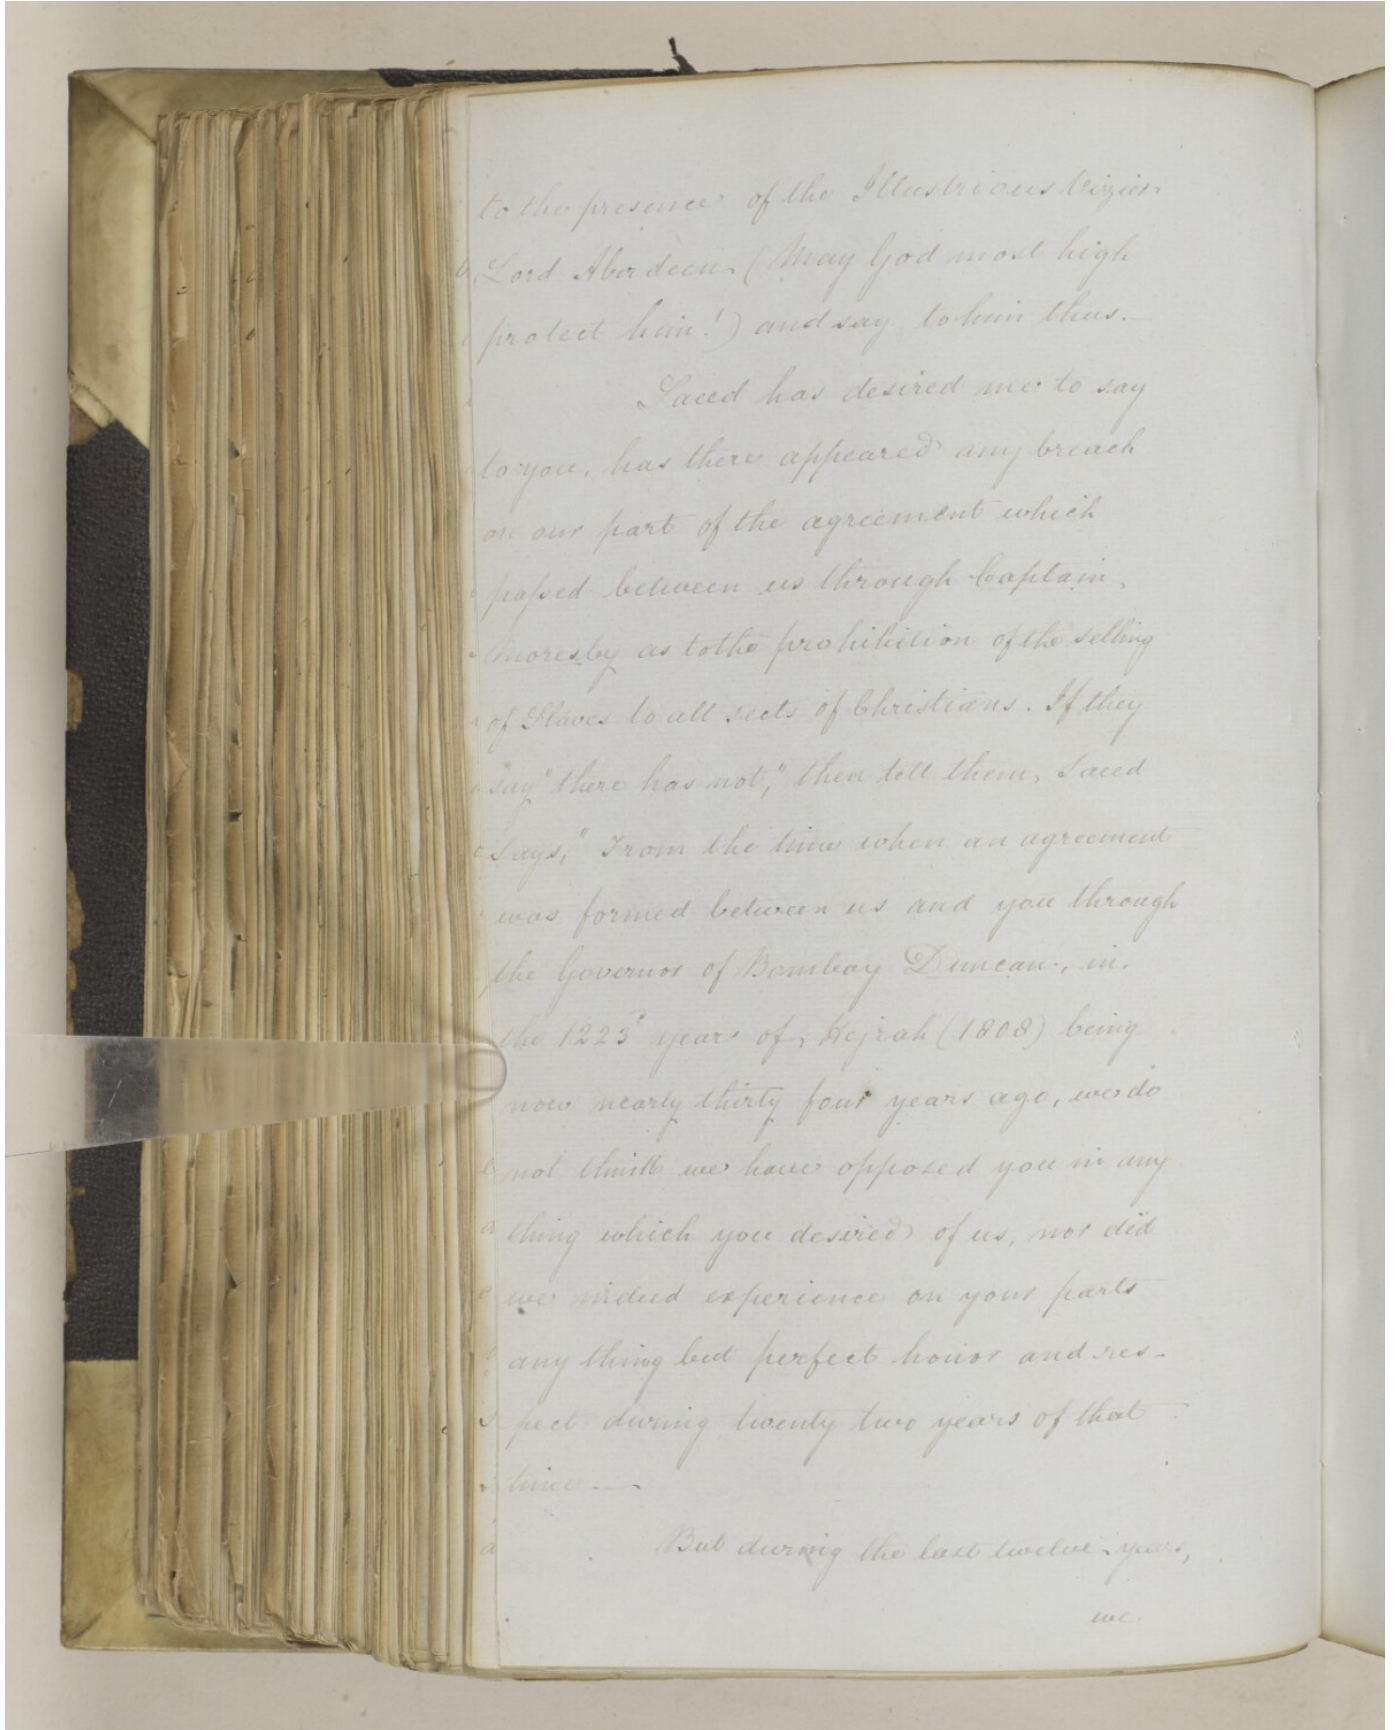 to the presence of the Illustrious Vizier
Lord Aberdeen, (May God most high
protect him!) and say to him thus.—
Saeed has desired me to say
to you, has there appeared any breach
on our part of the agreement which
passed between us through Captain
Moresby as to the prohibition of the selling
of Slaves to all sects of Christians. If they
say "there has not," then tell them, Saeed
says, "From the time when an agreement
was formed between us and you through
the Governor of Bombay Duncan, in
the 1223d year of Hejrah (1808) being
now nearly thirty four years ago, we do
not think we have opposed you in any
thing which you desired of us, nor did
we indeed experience on your parts
any thing but perfect honor and res-
-pect during twenty two years of that
time —.
But during the last twelve years,
we